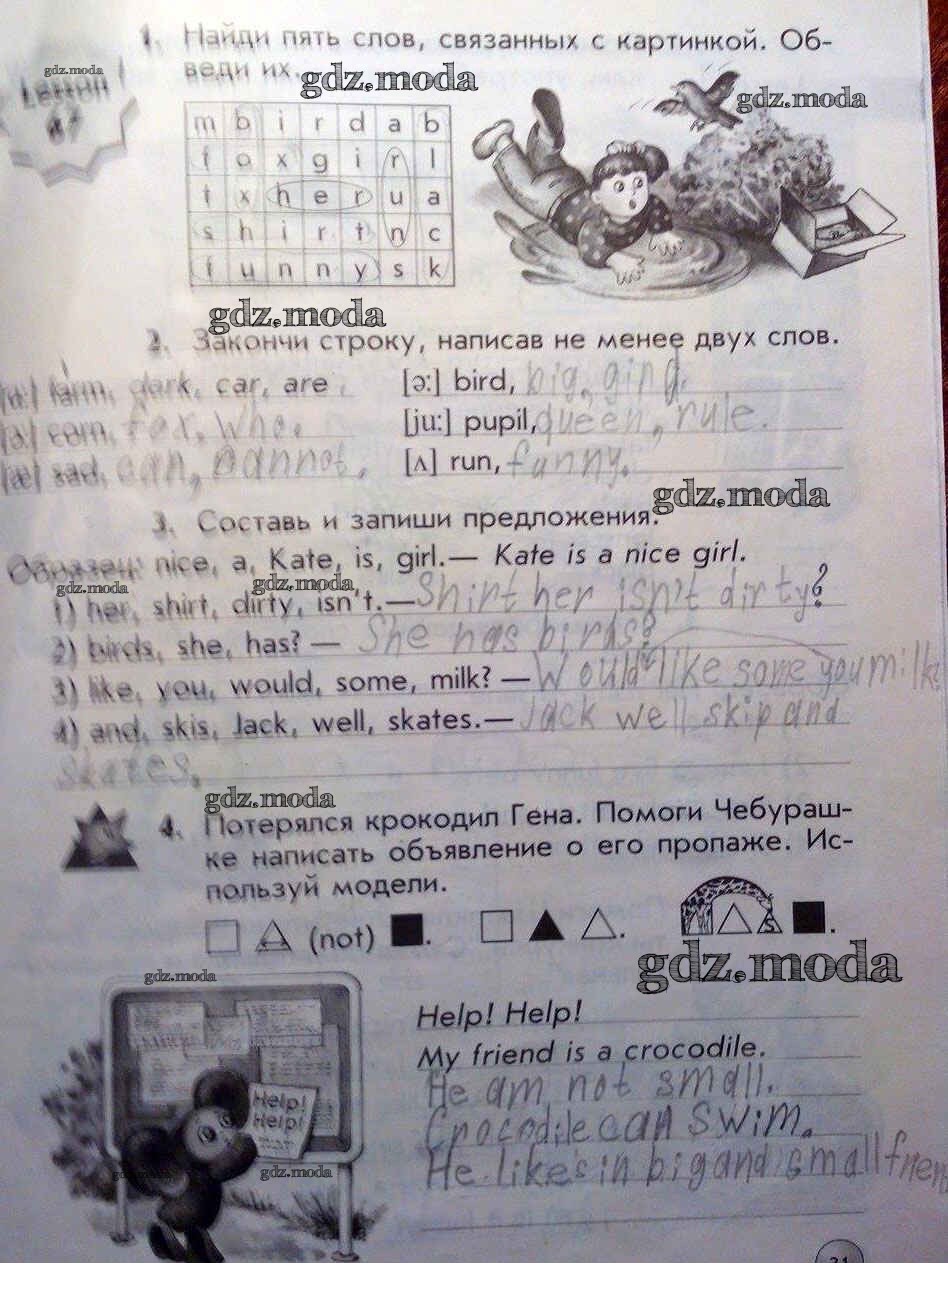 1. Найди пять слов, связанных с картинкой. Об-
gdz.moda
веди их.
gdz.moda
gdz.moda
Lesson
m b i r d a b
f o x g i r l
t x h e r u a
s h i r t n c
f u n n y s k
gdz.moda
2. Закончи строку, написав не менее двух слов.
[ɑ:] farm, dark, car, are.
[ə:] bird, big, ging.
[ɔ:] corn, for, who.
[ju:] pupil, queen, rule.
[æ] sad, can, cannot.
[ʌ] run, funny.
gdz.moda
3. Составь и запиши предложения.
Образец: nice, a, Kate, is, girl.— Kate is a nice girl.
gdz.moda
gdz.moda
1) her, shirt, dirty, isn't.— Shirt her isn't dirty?
2) birds, she, has? — She has birds?
3) like, you, would, some, milk? — Would like some you milk?
4) and, skis, Jack, well, skates.— Jack well skip and
skates.
gdz.moda
4. Потерялся крокодил Гена. Помоги Чебураш-
ке написать объявление о его пропаже. Ис-
пользуй модели.
(not)
s
gdz.moda
gdz.moda
Help! Help!
My friend is a crocodile.
He am not small.
Help!
Help!
Crocodile can swim.
He like's in big and small
gdz.moda
gdz.moda
31